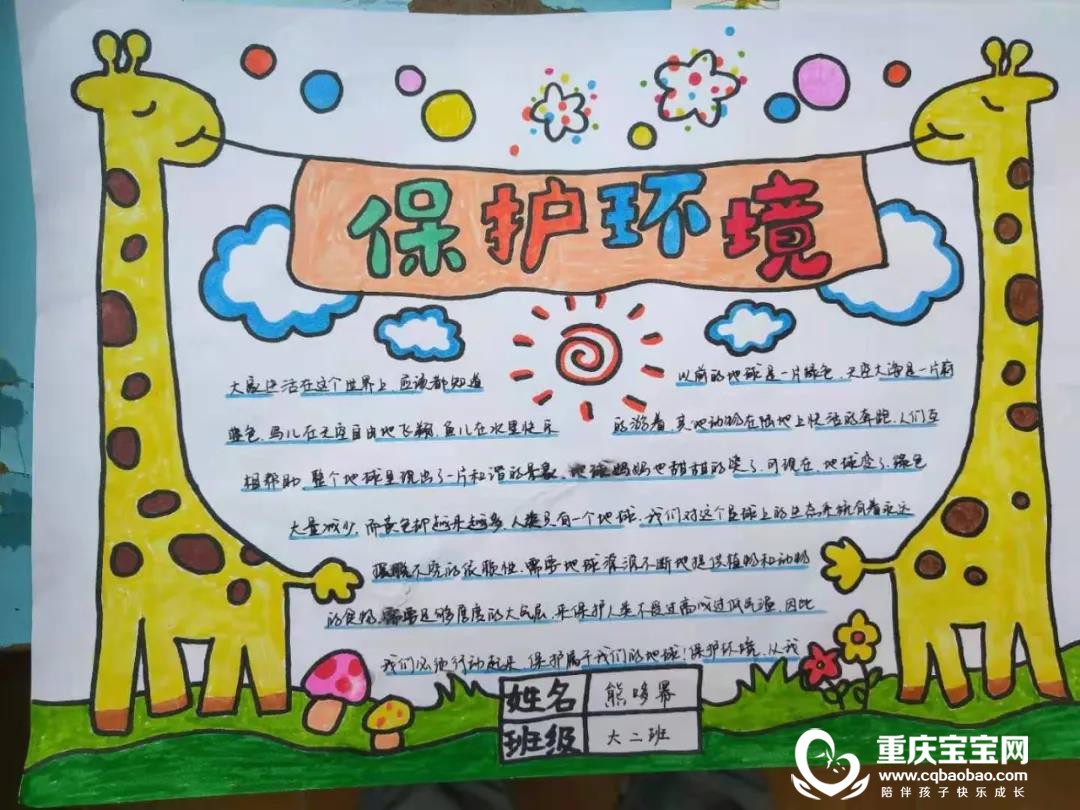 保护环境
大家生活在这个世界上,应该都知道 以前的地球是一片绿色,天空大海是一片蔚
蓝色,鸟儿在天空自由地飞翔,鱼儿在水里快乐 的游着,其他动物在陆地上快活的奔跑,人们互
相帮助,整个地球呈现出了一片和谐的景象,地球妈妈也甜甜的笑了,可现在,地球变了,绿色
大量减少,而黄色却越来越多,人类只有一个地球,我们对这个星球上的生态系统有着永远
不完的依赖性,需要地球源源不断地提供植物和动物
的食物,需要足够厚度的大气层,来保护人类不受过高或过低气温,因此
我们必须行动起来,保护属于我们的地球!保护环境,从我
姓名 熊哆
班级 大二班
重庆宝宝网
www.cqbaobao.com
陪伴孩子快乐成长